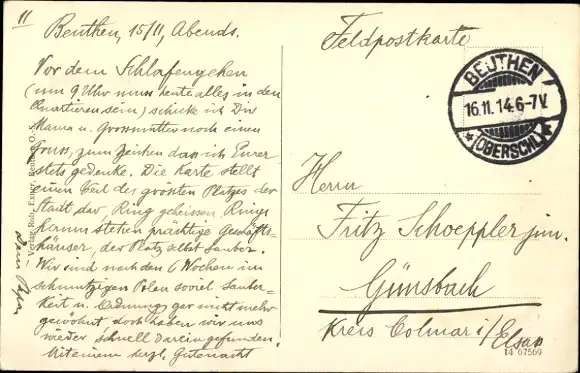 11
Beuthen, 15/11, Abends.
Vor dem Schlafengehen
(um 9 Uhr muss heute alles in den
Quartieren sein) schicke ich Dir
Mama u. Grossmutter noch einen
Gruss, zum Zeichen dass ich Eurer
stets gedenke. Die Karte stellt
einen Teil des grössten Platzes der
Stadt dar, Ring geheissen. Rings
herum stehen prächtige Geschäfts-
häuser, der Platz selbst sauber.
Wir sind nach den 6 Wochen im
schmutzigen Polen soviel Sauber-
keit u. Ordnung gar nicht mehr
gewöhnt, doch haben wir uns
wieder schnell darein gefunden.
Mit einem herzl. Gutenacht
Verlag Rob. Exner, Beuthen O.-S.
Feldpostkarte
BEUTHEN
16.11.14.6-7V.
* (OBERSCHL.) *
Herrn
Fritz Schoeppler jun.
Günsbach
Kreis Colmar i/Elsass
14 07569